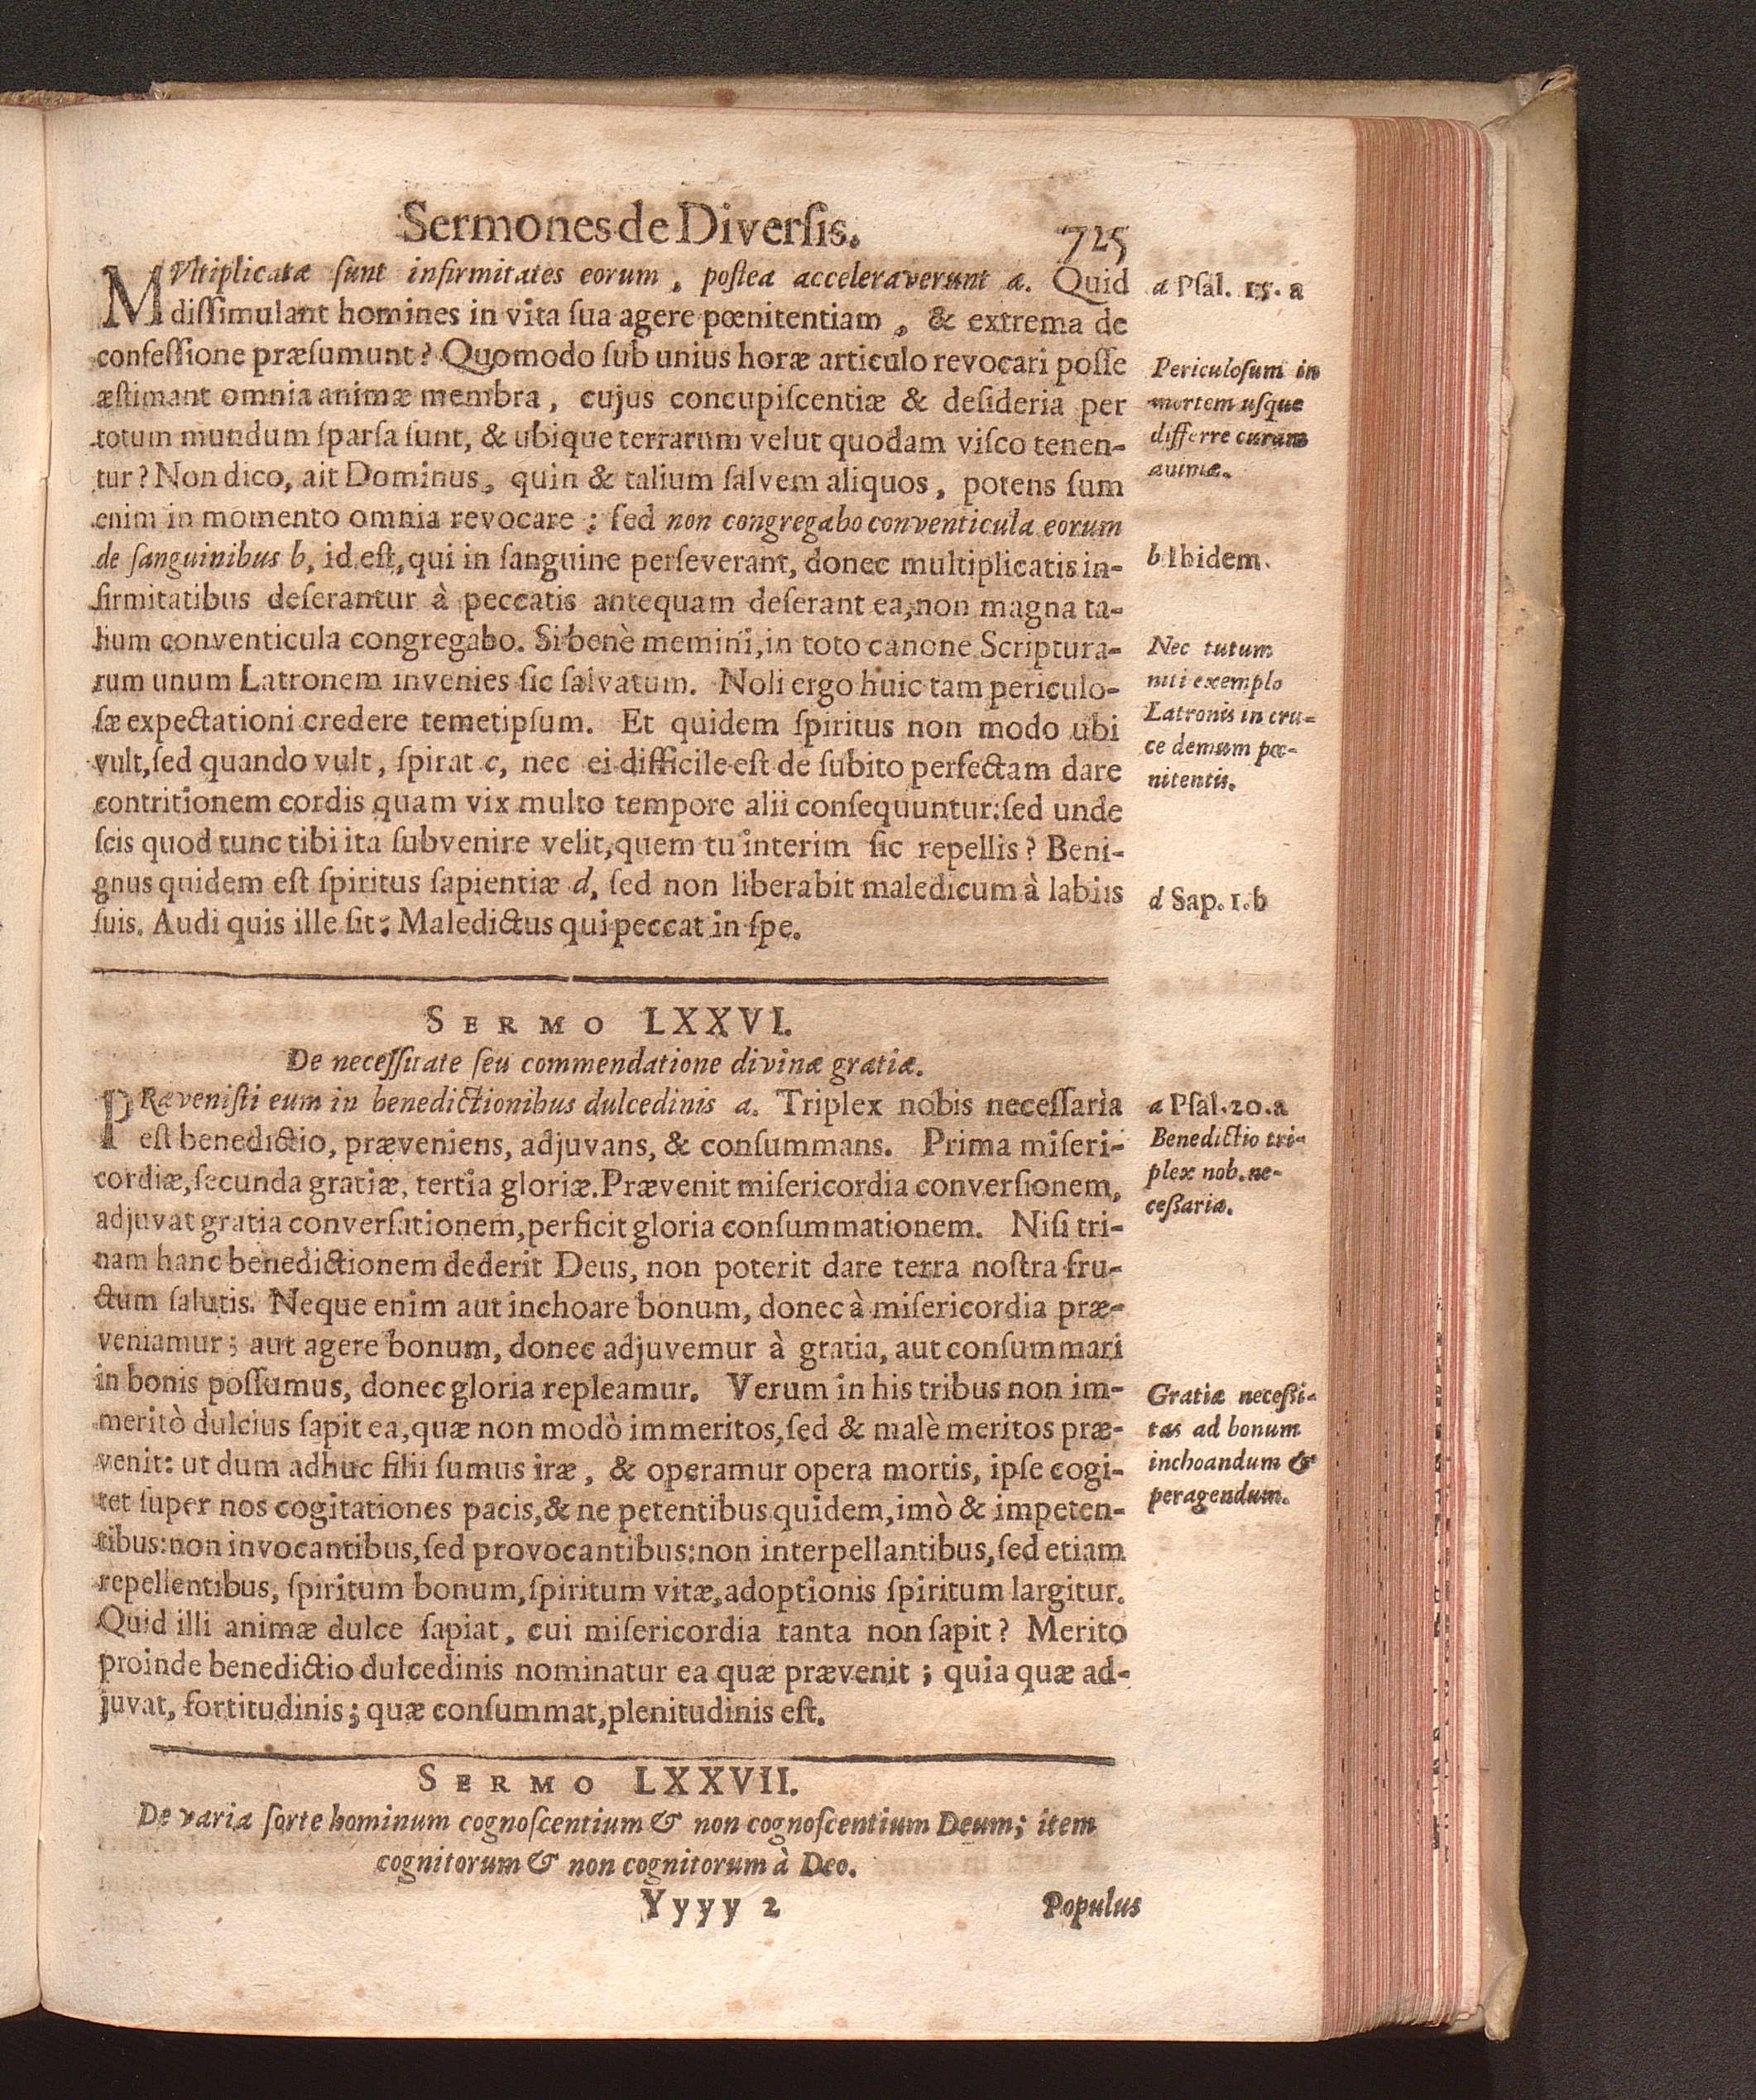 Sermones de Diverſis. 725
MVltiplicatæ ſunt infirmitates eorum, poſtea acceleraverunt a. Quid
diſſimulant homines in vita ſua agere pœnitentiam, & extrema de
confeſſione præſumunt? Quomodo ſub unius horæ articulo revocari poſſe
æſtimant omnia animæ membra, cujus concupiſcentiæ & deſideria per
totum mundum ſparſa ſunt, & ubique terrarum velut quodam viſco tenen-
tur? Non dico, ait Dominus, quin & talium ſalvem aliquos, potens ſum
enim in momento omnia revocare: ſed non congregabo conventicula eorum
de ſanguinibus b, id eſt, qui in ſanguine perſeverant, donec multiplicatis in-
firmitatibus deſerantur à peccatis antequam deſerant ea, non magna ta-
lium conventicula congregabo. Si benè memini, in toto canone Scriptura-
rum unum Latronem invenies ſic ſalvatum. Noli ergo huic tam periculo-
ſæ expectationi credere temetipſum. Et quidem ſpiritus non modo ubi
vult, ſed quando vult, ſpirat c, nec ei difficile eſt de ſubito perfectam dare
contritionem cordis quam vix multo tempore alii conſequuntur: ſed unde
ſcis quod tunc tibi ita ſubvenire velit, quem tu interim ſic repellis? Beni-
gnus quidem eſt ſpiritus ſapientiæ d, ſed non liberabit maledicum à labiis
ſuis. Audi quis ille ſit: Maledictus qui peccat in ſpe.
a Pſal. 15. a
Periculoſum in
mortem uſque
differre curam
animæ.
b Ibidem.
Nec tutum
niti exemplo
Latronis in cru-
ce demum pœ-
nitentis.
d Sap. 1. b
SERMO LXXVI.
De neceſſitate ſeu commendatione divinæ gratiæ.
PRæveniſti eum in benedictionibus dulcedinis a. Triplex nobis neceſſaria
eſt benedictio, præveniens, adjuvans, & conſummans. Prima miſeri-
cordiæ, ſecunda gratiæ, tertia gloriæ. Prævenit miſericordia converſionem,
adjuvat gratia converſationem, perficit gloria conſummationem. Niſi tri-
nam hanc benedictionem dederit Deus, non poterit dare terra noſtra fru-
ctum ſalutis. Neque enim aut inchoare bonum, donec à miſericordia præ-
veniamur; aut agere bonum, donec adjuvemur à gratia, aut conſummari
in bonis poſſumus, donec gloria repleamur. Verum in his tribus non im-
meritò dulcius ſapit ea, quæ non modò immeritos, ſed & malè meritos præ-
venit: ut dum adhuc filii ſumus iræ, & operamur opera mortis, ipſe cogi-
tet ſuper nos cogitationes pacis, & ne petentibus quidem, imò & impeten-
tibus: non invocantibus, ſed provocantibus: non interpellantibus, ſed etiam
repellentibus, ſpiritum bonum, ſpiritum vitæ, adoptionis ſpiritum largitur.
Quid illi animæ dulce ſapiat, cui miſericordia tanta non ſapit? Merito
proinde benedictio dulcedinis nominatur ea quæ prævenit; quia quæ ad-
juvat, fortitudinis; quæ conſummat, plenitudinis eſt.
a Pſal. 20. a
Benedictio tri-
plex nob. ne-
ceßaria.
Gratiæ neceßi-
tas ad bonum
inchoandum &
peragendum.
SERMO LXXVII.
De varia ſorte hominum cognoſcentium & non cognoſcentium Deum; item
cognitorum & non cognitorum à Deo.
Yyyy 2 Populus